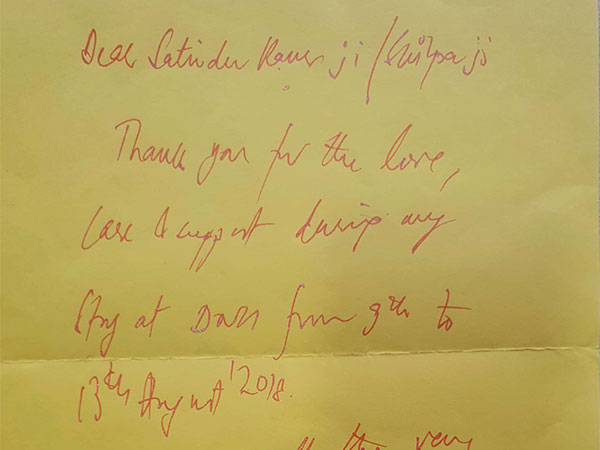 Dear Satinder Kaur ji / Shilpa ji
Thank you for the love,
care & support during my
stay at from 9th to
13th August '2018.
the very